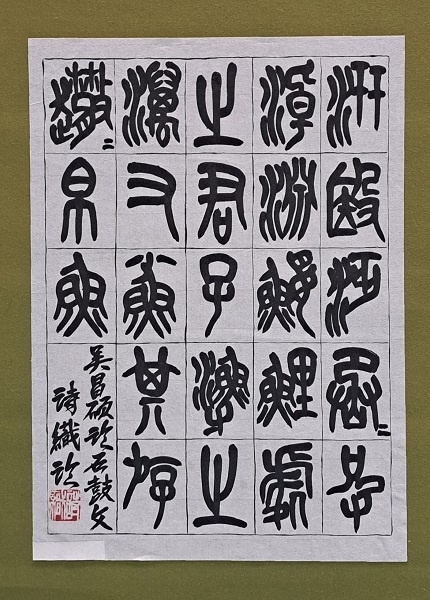 汧殹沔丞〻皮
淖淵鰋鯉處
之君子漁之
澫又小魚其斿
帛魚
吳昌碩臨石鼓文
詩織臨